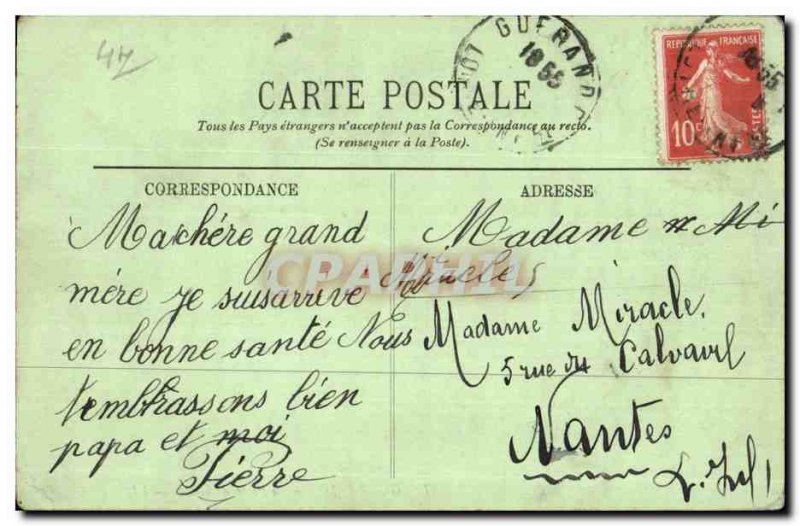 44
GUERANDE
18 55
REPUBLIQUE FRANÇAISE
10c
POSTES
18 55
CARTE POSTALE
Tous les Pays étrangers n'acceptent pas la Correspondance au recto.
(Se renseigner à la Poste).
CORRESPONDANCE
Ma chére grand
mére je suis arrivé
en bonne santé Nous
t'embrassons bien
papa et moi
Pierre
ADRESSE
Madame Mi
Miracles
Madame Miracle,
5 rue du Calvaire
Nantes
L. Inf
CPARAMA